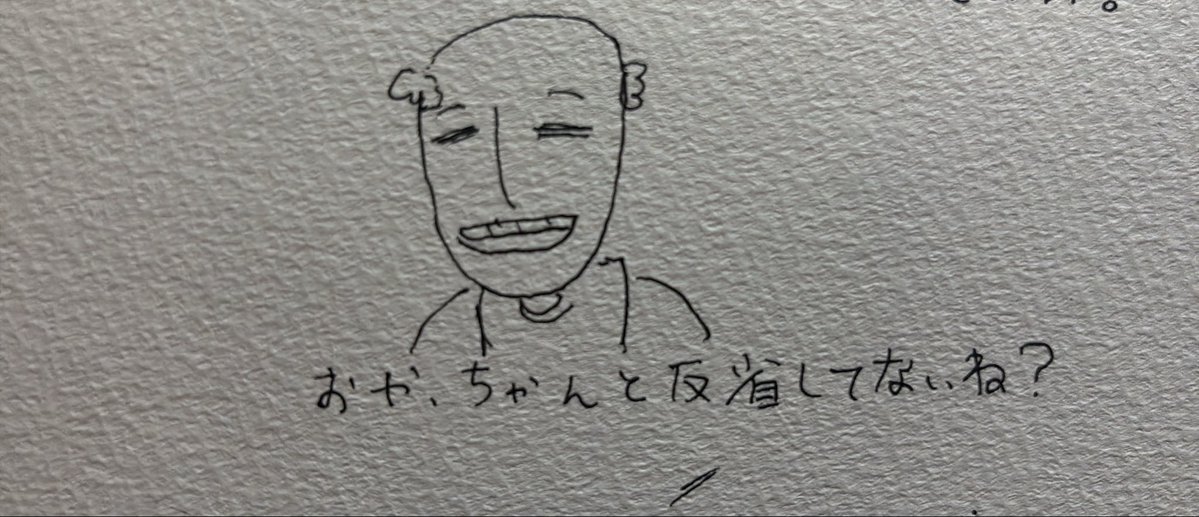 おや、ちゃんと反省してないね?